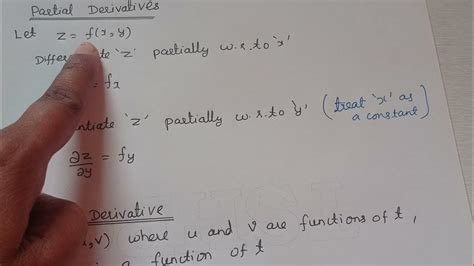 Partial Derivatives
Let z = f(x, y)
Differ te 'z' partially w.r.to 'x'
= fx
ntiate 'z' partially w.r.to 'y' (treat 'x' as
a constant)
∂z/∂y = fy
Derivative
, v) where u and v are functions of t,
a function of t